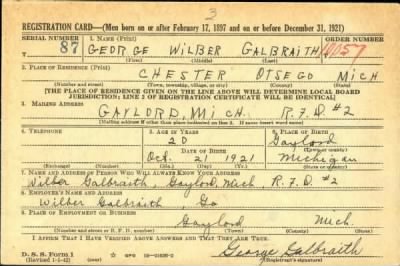 3
REGISTRATION CARD—(Men born on or after February 17, 1897 and on or before December 31, 1921)
SERIAL NUMBER 1. NAME (Print) ORDER NUMBER
87 GEORGE WILBER GALBRAITH 10057
(First) (Middle) (Last)
2. PLACE OF RESIDENCE (Print)
CHESTER OTSEGO MICH
(Number and street) (Town, township, village, or city) (County) (State)
[THE PLACE OF RESIDENCE GIVEN ON THE LINE ABOVE WILL DETERMINE LOCAL BOARD
JURISDICTION; LINE 2 OF REGISTRATION CERTIFICATE WILL BE IDENTICAL]
3. MAILING ADDRESS
GAYLORD, MICH. R.F.D #2
[Mailing address if other than place indicated on line 2. If same insert word same]
4. TELEPHONE 5. AGE IN YEARS 6. PLACE OF BIRTH
20 Gaylord
DATE OF BIRTH (Town or county)
Oct. 21 1921 Michigan
(Exchange) (Number) (Mo.) (Day) (Yr.) (State or country)
7. NAME AND ADDRESS OF PERSON WHO WILL ALWAYS KNOW YOUR ADDRESS
Wilber Galbraith, Gaylord, Mich, R.F.D. #2
8. EMPLOYER'S NAME AND ADDRESS
Wilber Galbraith
9. PLACE OF EMPLOYMENT OR BUSINESS
Gaylord Mich.
(Number and street or R. F. D. number) (Town) (County) (State)
I AFFIRM THAT I HAVE VERIFIED ABOVE ANSWERS AND THAT THEY ARE TRUE.
D. S. S. Form 1 GPO George Galbraith
(Revised 1-5-42) (Registrant's signature)